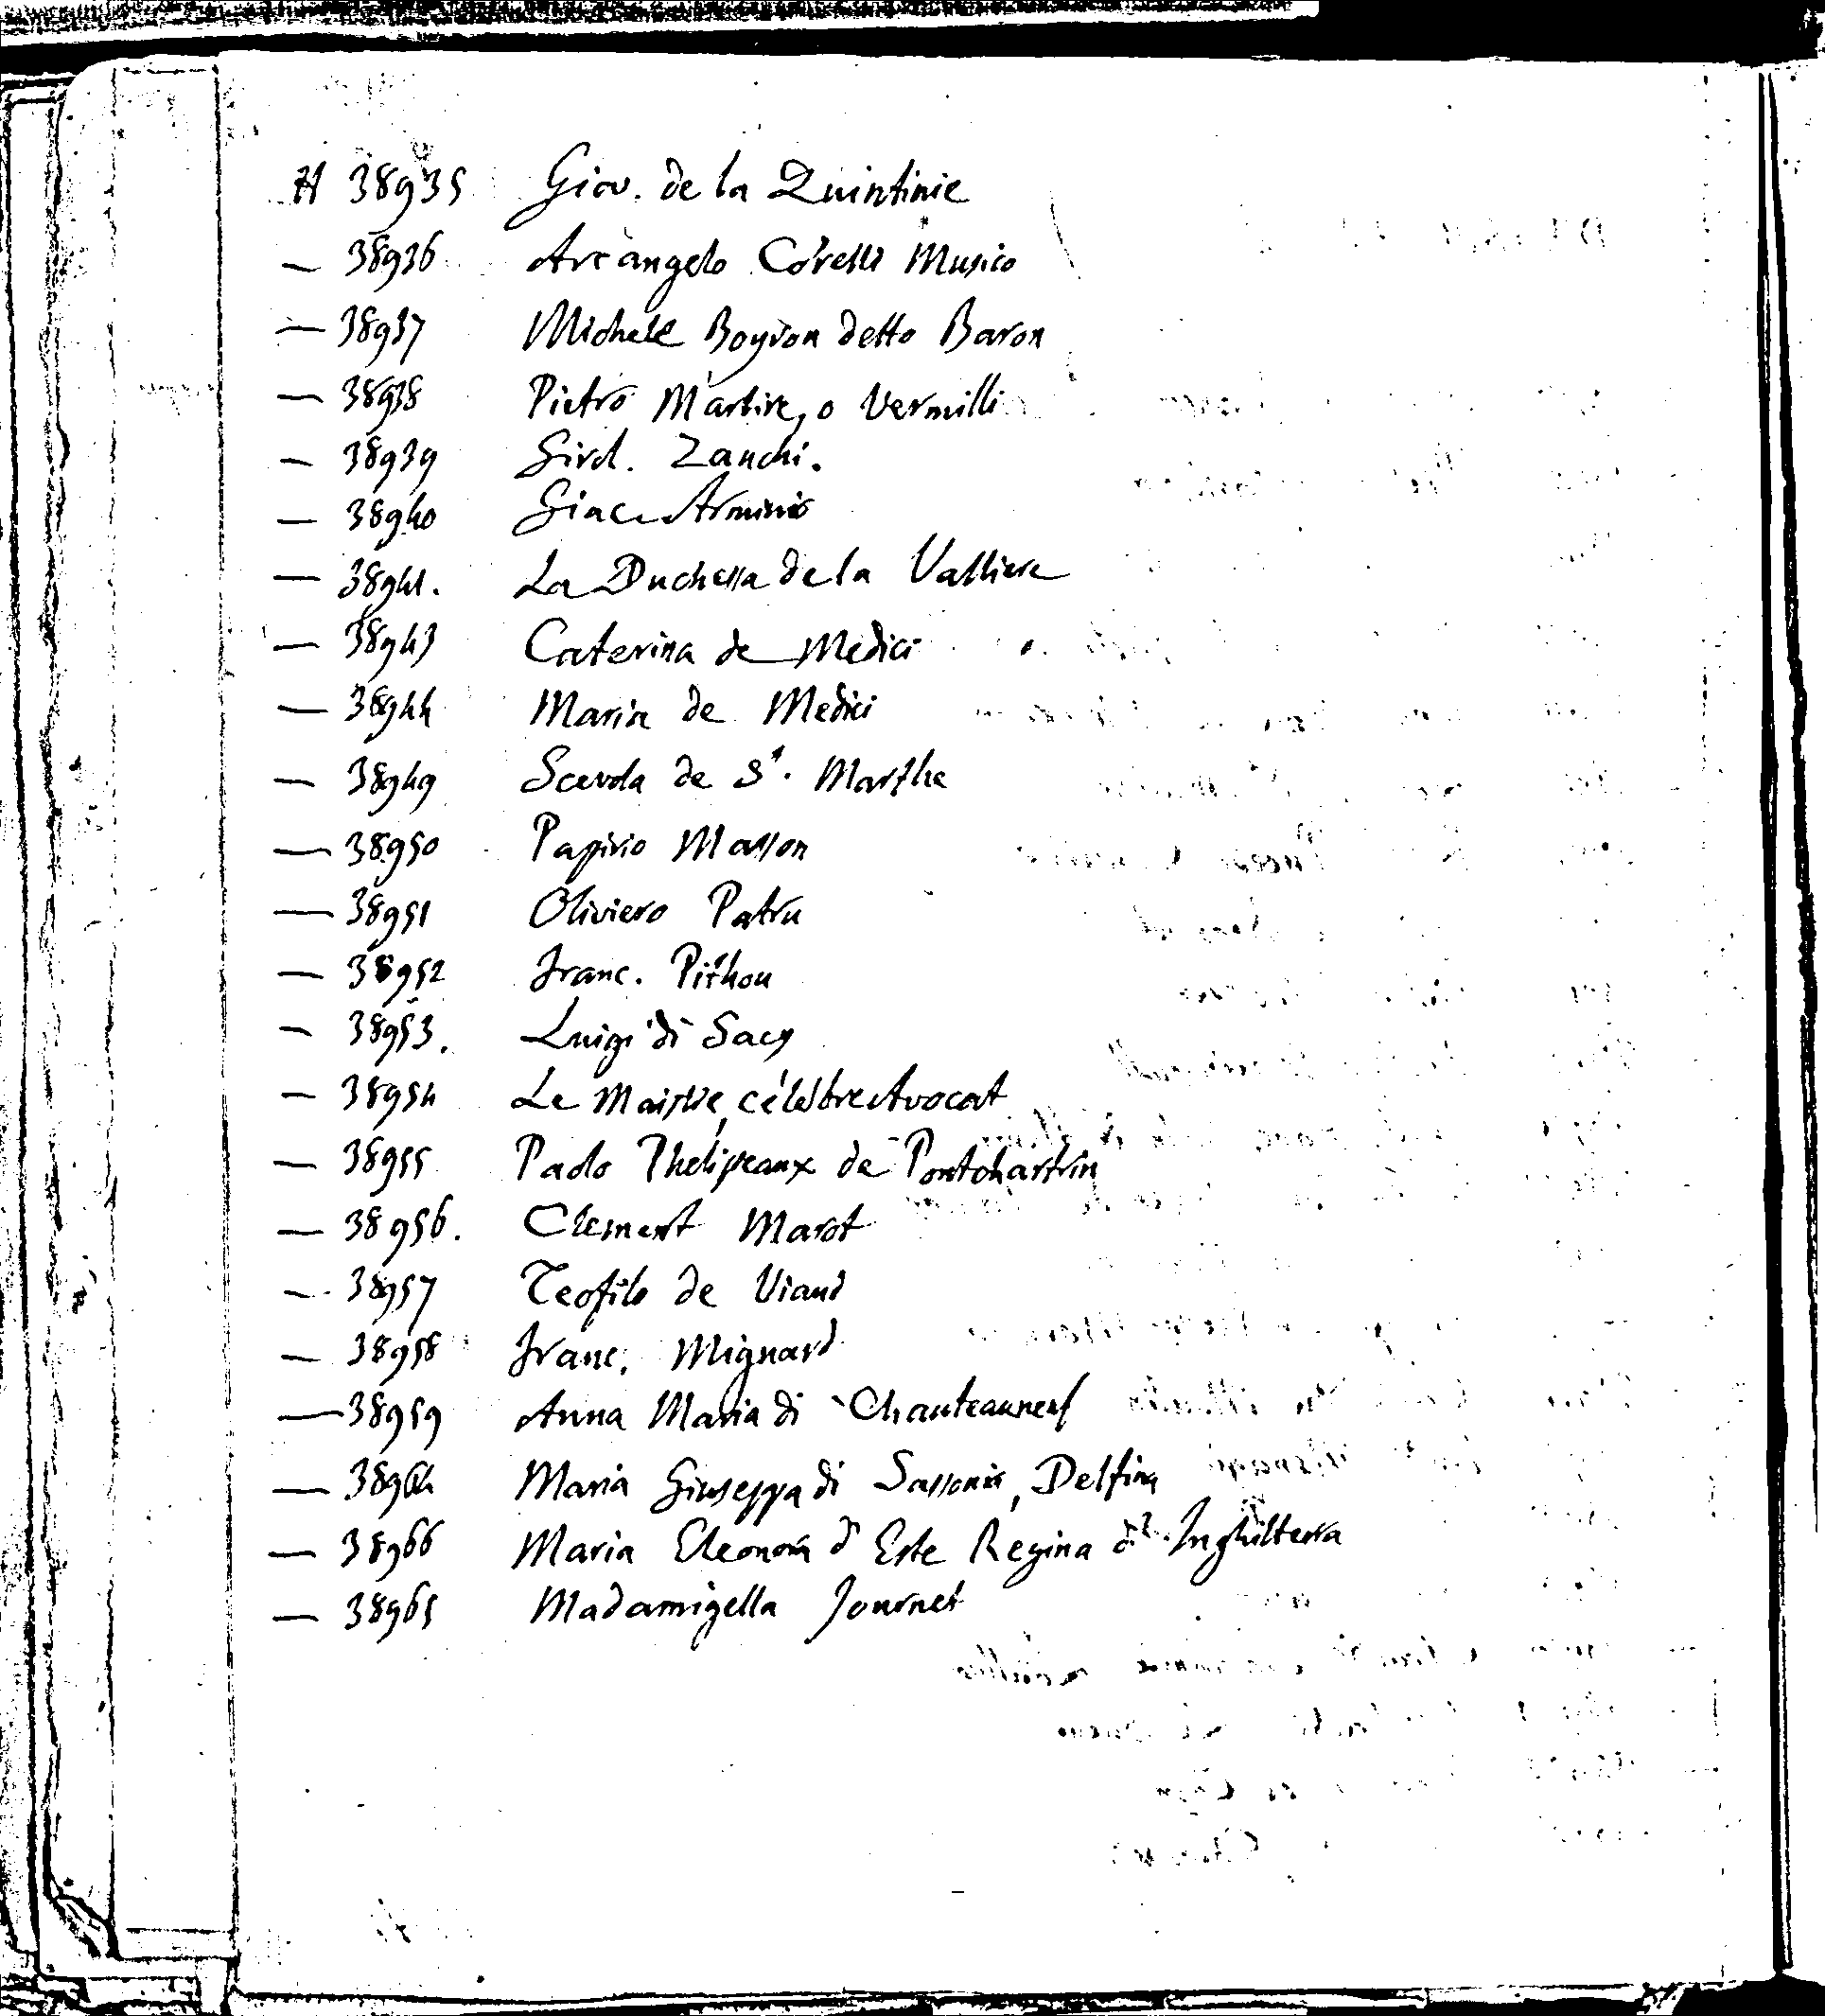 H 38935 Giov. de la Quintinie
— 38936 Arcangelo Corelli Musico
— 38937 Michele Boyron detto Baron
— 38938 Pietro Martire, o Vermilli
— 38939 Girol. Zanchi.
— 38940 Giac. Arminio
— 38941. La Duchessa de la Valliere
— 38943 Caterina de Medici
— 38944 Maria de Medici
— 38949 Scevola de St. Marthe
— 38950 Papirio Masson
— 38951 Oliviero Patru
— 38952 Franc. Pithou
— 38953. Luigi di Sacy
— 38954 Le Maistre, célèbre Avocat
— 38955 Paolo Phelipeaux de Pontchartrin
— 38956. Clement Marot
— 38957 Teofilo de Viaud
— 38958 Franc. Mignard
— 38959 Anna Maria di Chauteauneuf
— 38964 Maria Giuseppa di Sassonia, Delfina
— 38966 Maria Eleonora d'Este Regina d'Inghilterra
— 38965 Madamigella Journet